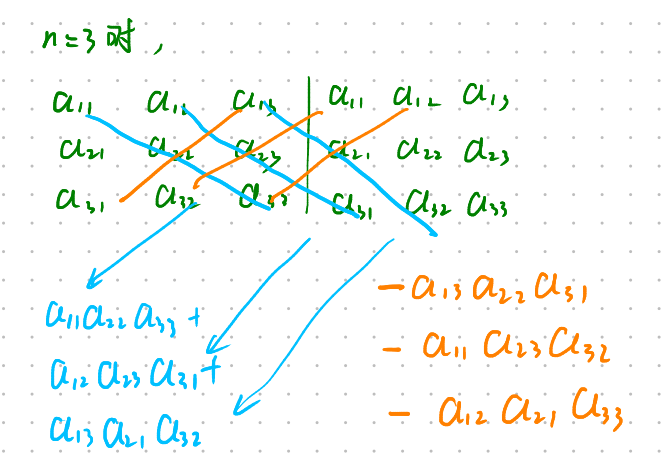 n=3时,
a₁₁ a₁₂ a₁₃ | a₁₁ a₁₂ a₁₃
a₂₁ a₂₂ a₂₃ | a₂₁ a₂₂ a₂₃
a₃₁ a₃₂ a₃₃ | a₃₁ a₃₂ a₃₃
a₁₁a₂₂a₃₃+
a₁₂a₂₃a₃₁+
a₁₃a₂₁a₃₂
-a₁₃a₂₂a₃₁
-a₁₁a₂₃a₃₂
-a₁₂a₂₁a₃₃